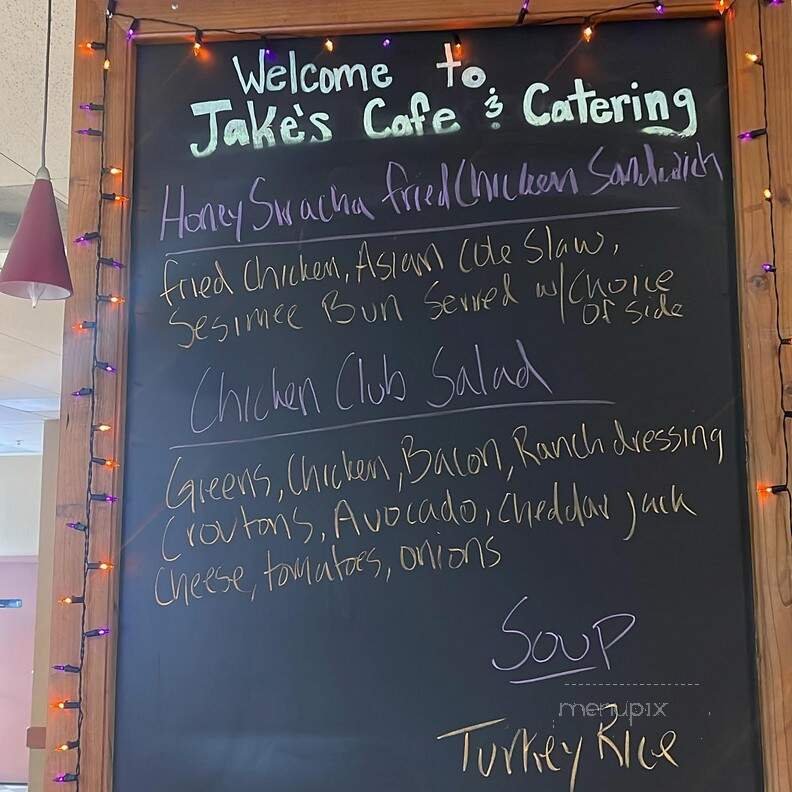 Welcome to
Jake's Cafe & Catering
Honey Siracha fried Chicken Sandwich
fried Chicken, Asian Cole Slaw,
Sesimee Bun Served w/ Choice
of side
Chicken Club Salad
Greens, Chicken, Bacon, Ranch dressing
Croutons, Avocado, Cheddar jack
Cheese, tomatoes, onions
Soup
menupix
Turkey Rice